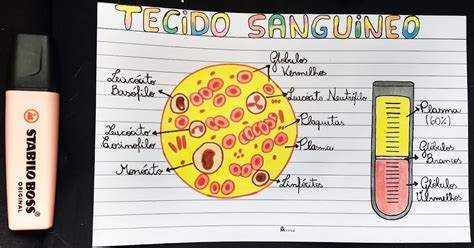 TECIDO SANGUINEO
Glóbulos
Vermelhos
Leucócito
Basófilo
Leucócito Neutrófilo
Plaquetas
Leucócito
Eosinófilo
Plasma
Monócito
Linfócitos
Plasma
(60%)
Glóbulos
Brancos
Glóbulos
Vermelhos
STABILO BOSS
ORIGINAL